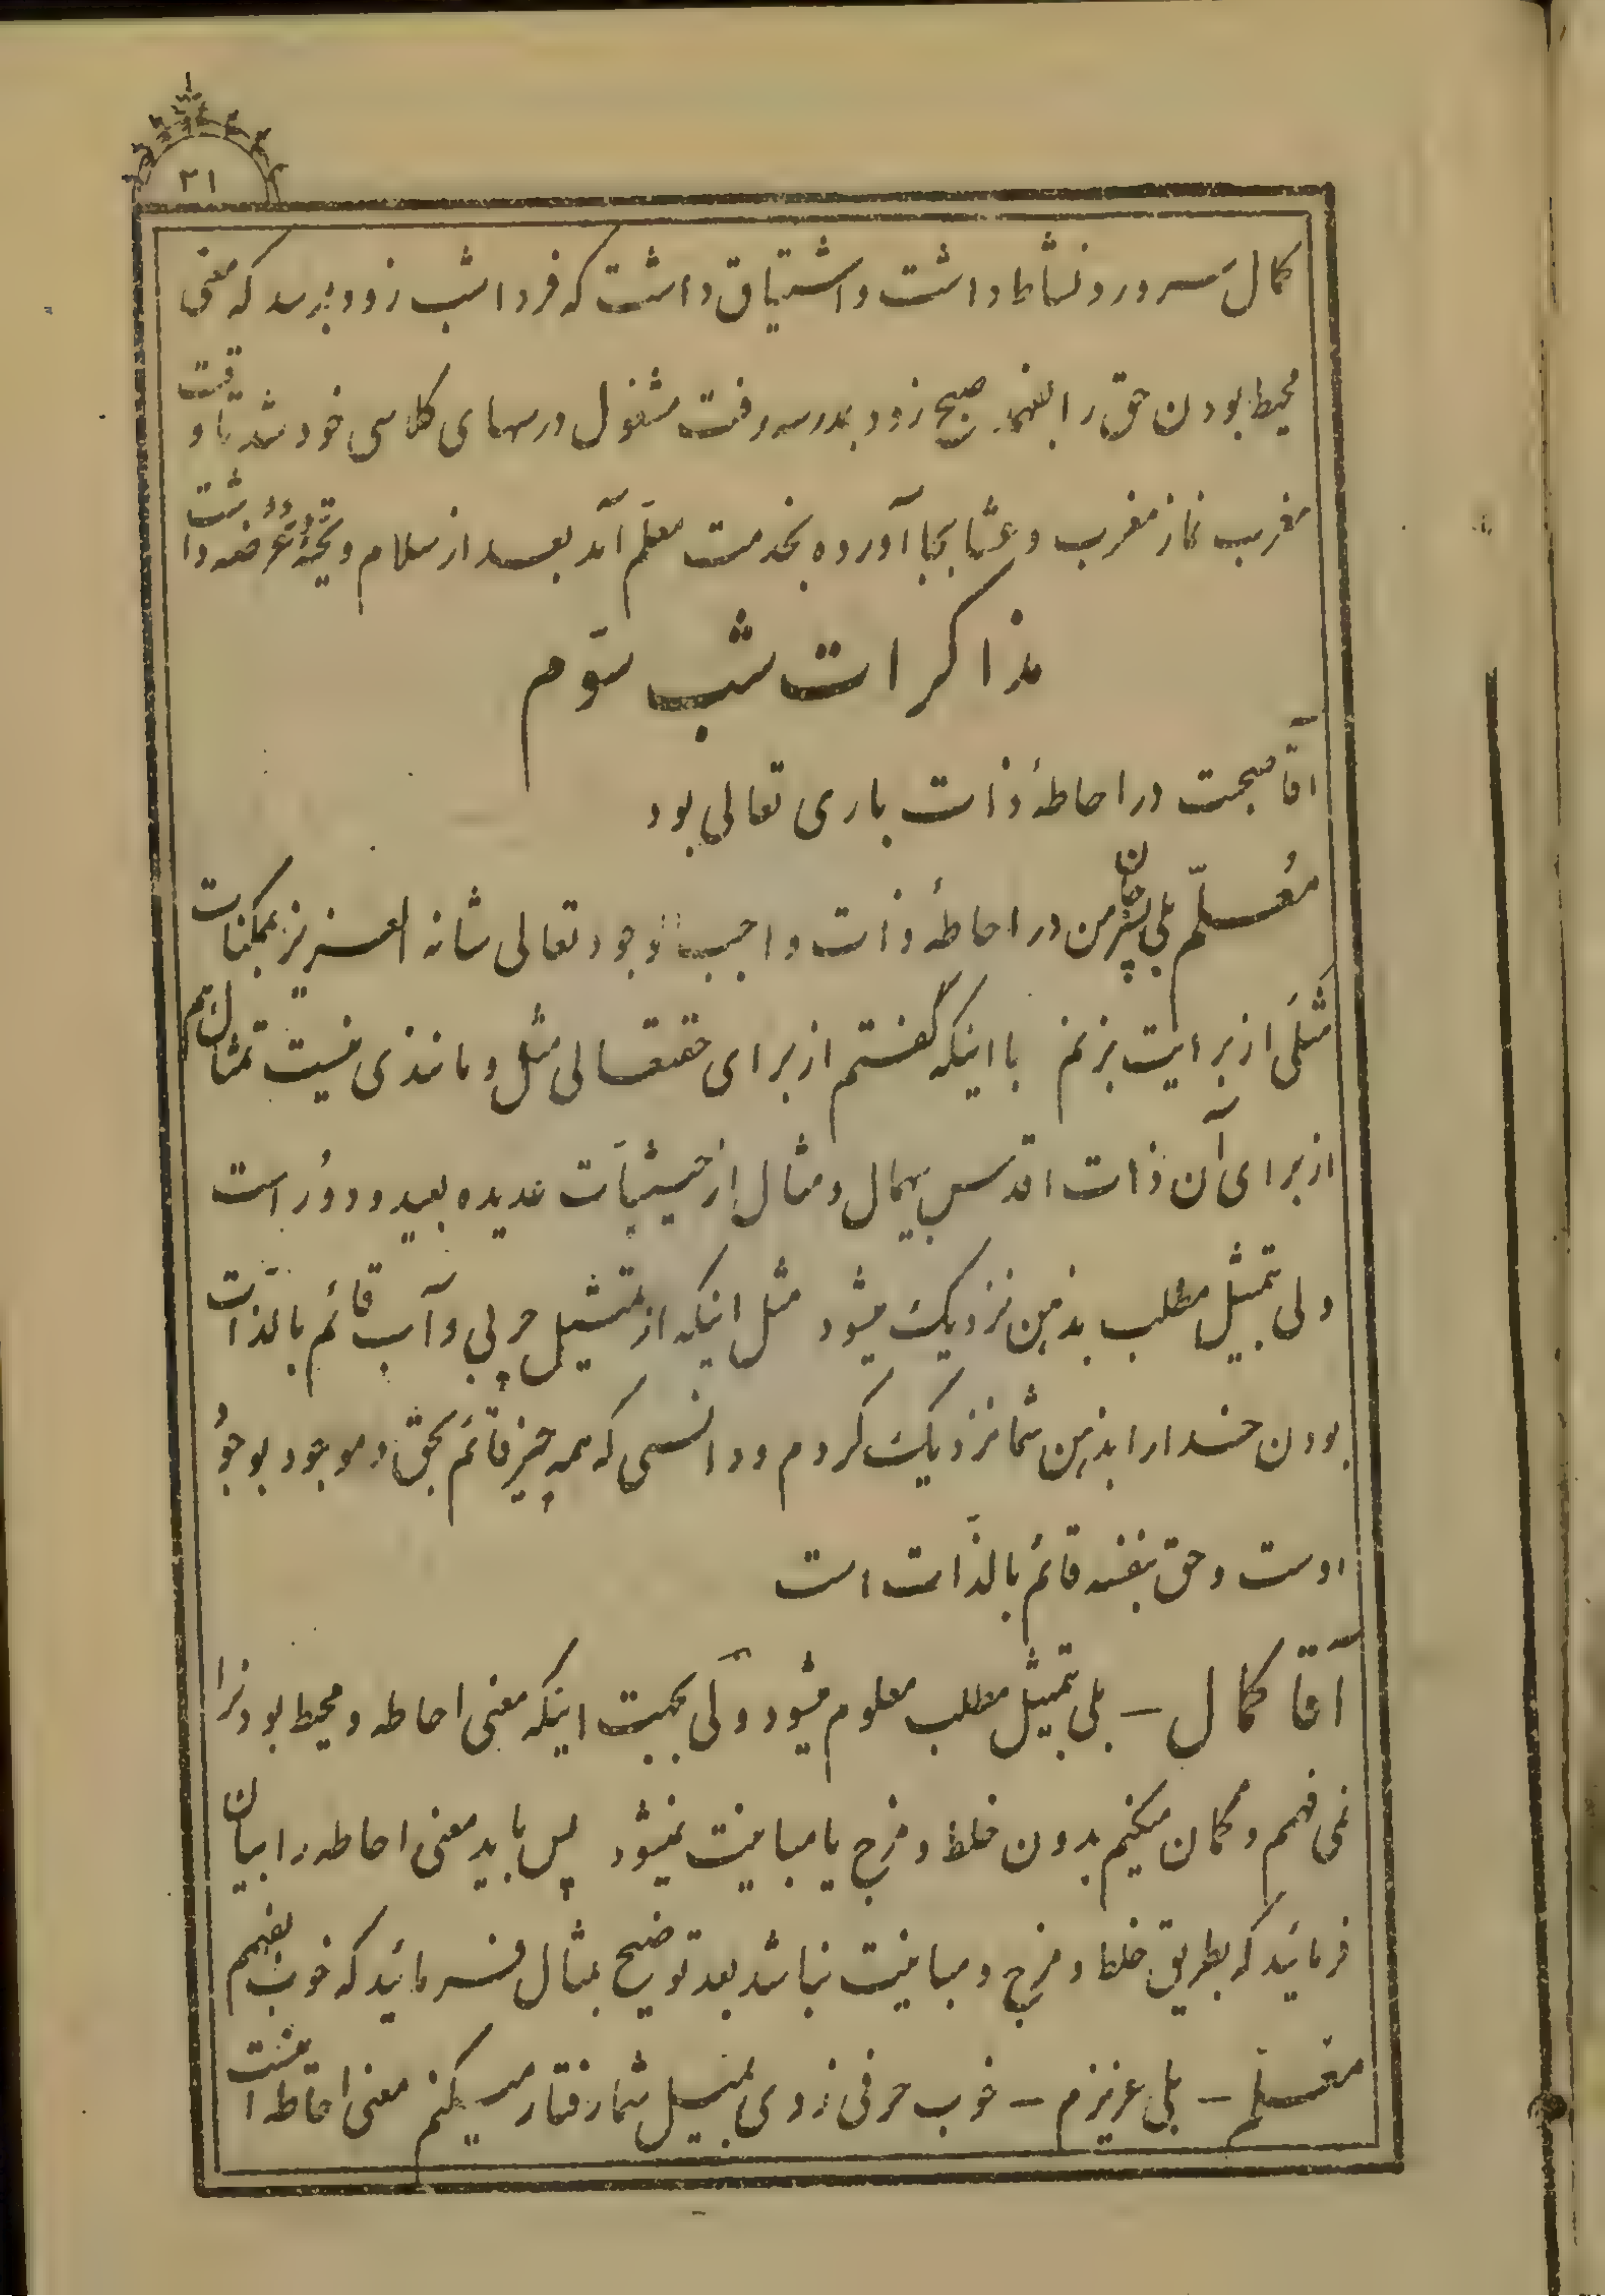 ۳۱
کمال سرور و نشاط داشت و اشتیاق داشت که فردا شب زود برسد که معنی
محیط بودن حق را بفهمد صبح زود بمدرسه رفت مشغول درسهای کلاسی خود شد تا وقت
مغرب نماز مغرب و عشا بجا آورده بخدمت معلم آمد بعد از سلام و تحیّة عرضه داشت
مذاکرات شب سوّم
آقا صحبت در احاطهٔ ذات باری تعالی بود
مُعلّم بلی پسر جان من در احاطهٔ ذات واجب الوجود تعالی شانه العزیز بممکنات
مثلی از برایت بزنم با اینکه گفتم از برای حقتعالی مثل و مانندی نیست تمثال هم
از برای آن ذات اقدس بیمال و مثال از حیثیّات عدیده بعید و دوُر است
ولی بتمثیل مطلب بذهن نزدیک میشود مثل اینکه از تمثیل چربی و آب قائم بالذّات
بودن خدا را بذهن شما نزدیک کردم و دانستی که همه چیز قائم بحق و موجود بوجوُد
اوست و حق بنفسه قائم بالذّات است
آقا کمال – بلی بتمثیل مطلب معلوم میشود ولی بجهت اینکه معنی احاطه و محیط بودنرا
نمی فهمم و گمان میکنم بدون خلط و مزج یا مباینت نمیشود پس باید معنی احاطه را بیان
فرمائید که بطریق خلط و مزج و مباینت نباشد بعد توضیح بمثال فرمائید که خوب بفهمم
معلّم – بلی عزیزم – خوب حرفی زدی بمیل شما رفتار میکنم معنی احاطه اینست